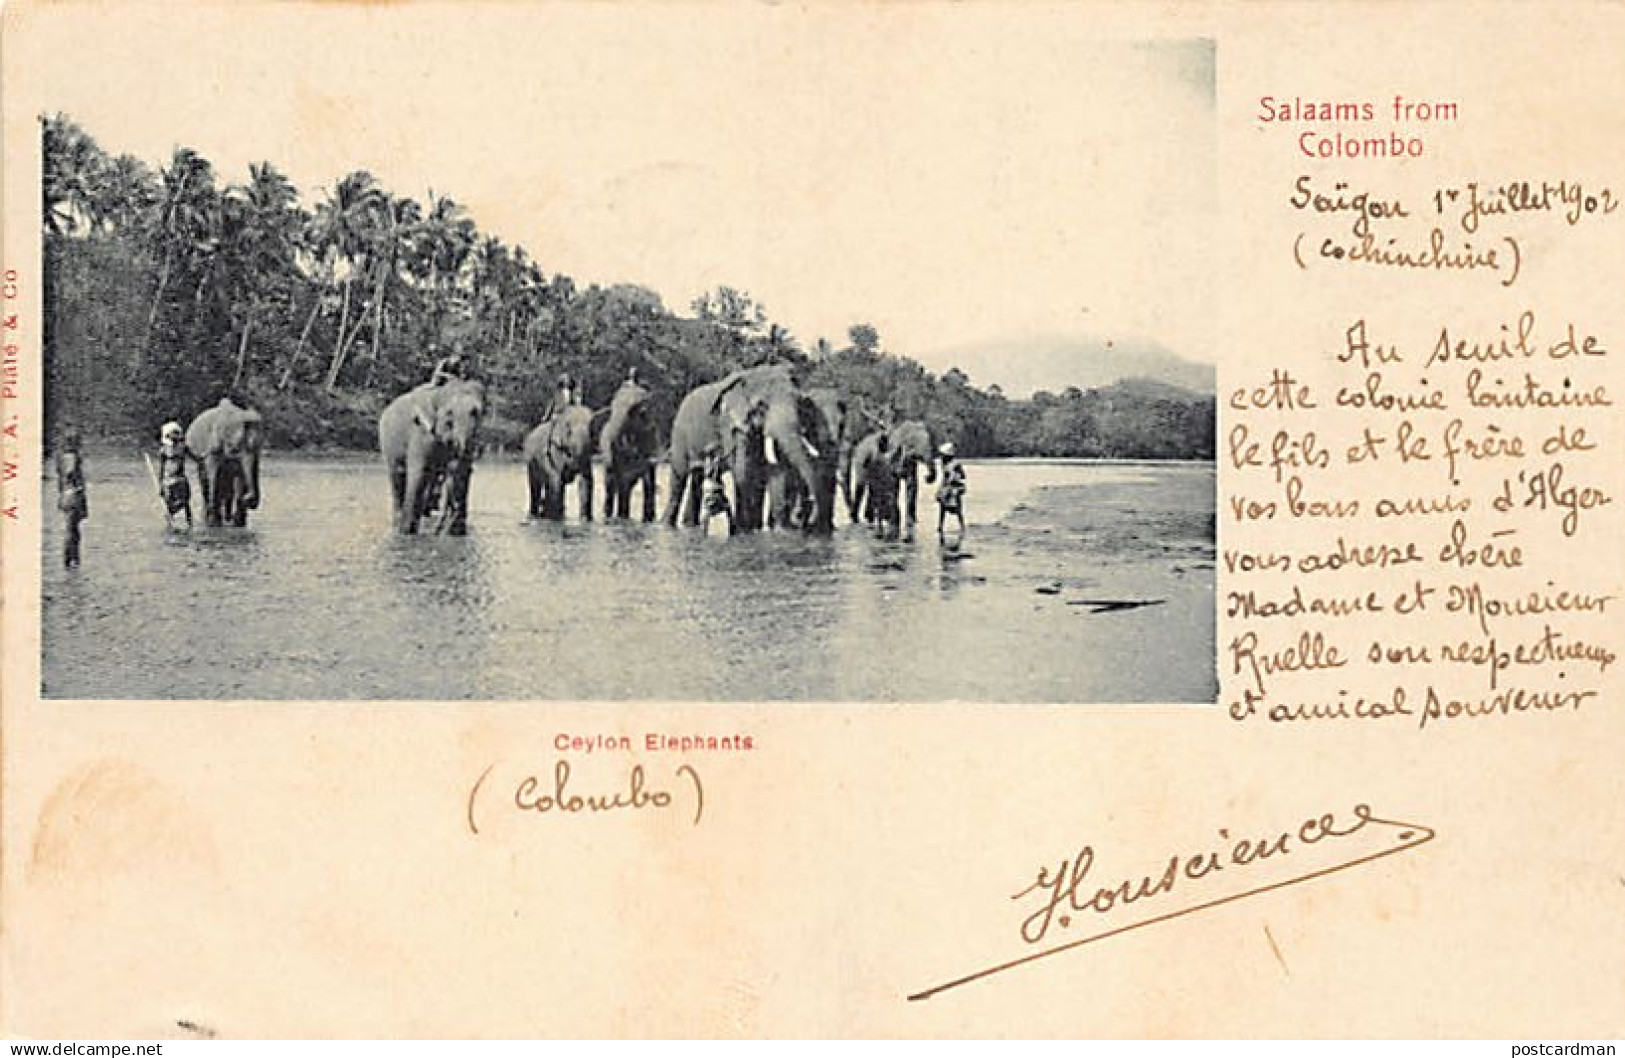 Salaams from
Colombo
Saïgon 1r Juillet 1902
(cochinchine)
Au seuil de
cette colonie lointaine
le fils et le frère de
vos bons amis d'Alger
vous adresse chère
Madame et Monsieur
Ruelle son respectueux
et amical souvenir
A. W. A. Plâté & Co
Ceylon Elephants.
(Colombo)
www.delcampe.net
postcardman